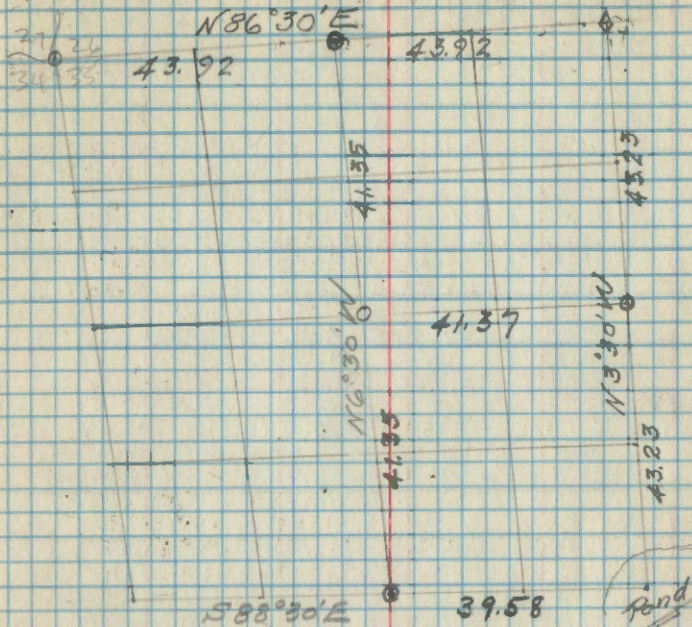 N86°30'E
27 26
34 35
43.92
43.92
41.35
43.23
N6°30'W
41.37
N3°30'W
41.35
43.23
S88°30'E
39.58
Pond